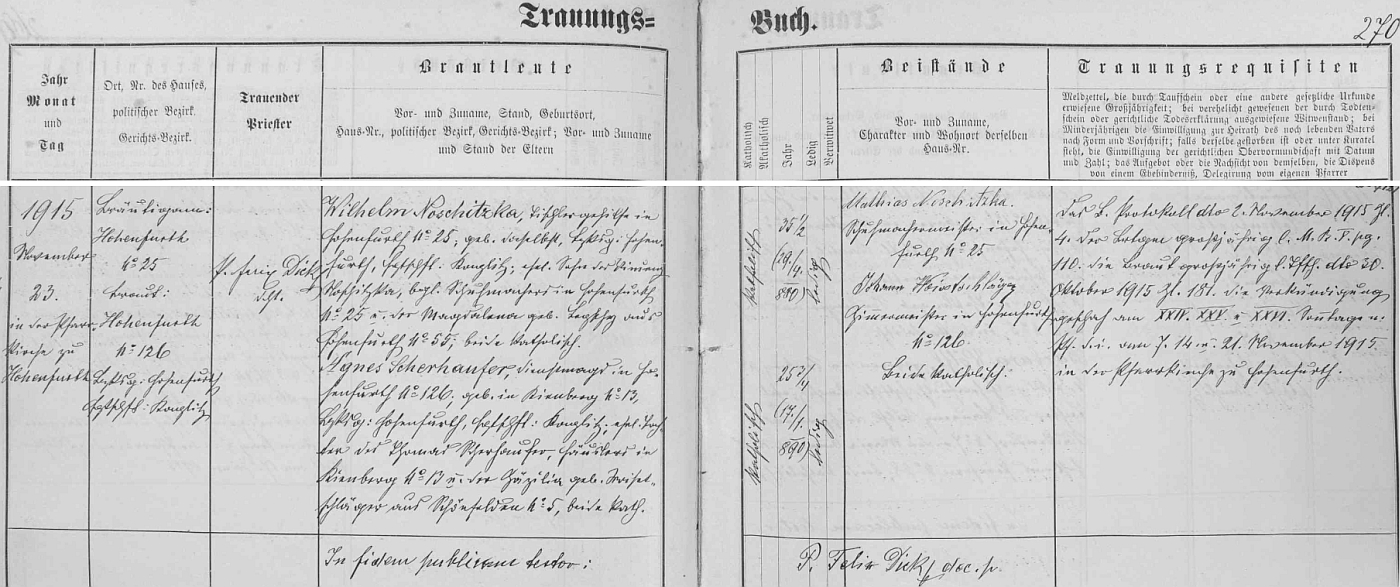 Trauungs=
Buch.
270
Jahr
Monat
und
Tag
Ort, Nr. des Hauses,
politischer Bezirk.
Gerichts-Bezirk.
Trauender
Priester
Brautleute
Vor- und Zuname, Stand, Geburtsort,
Haus-Nr., politischer Bezirk, Gerichts-Bezirk; Vor- und Zuname
und Stand der Eltern
Katholisch
Akatholisch
Jahr
Ledig
Verwitwet
Beistände
Vor- und Zuname,
Charakter und Wohnort derselben
Haus-Nr.
Trauungsrequisiten
Meldzettel, die durch Taufschein oder eine andere gesetzliche Urkunde
erwiesene Großjährigkeit; bei verehelicht gewesenen der durch Todten-
schein oder gerichtliche Todeserklärung ausgewiesene Witwenstand; bei
Minderjährigen die Einwilligung zur Heirath des noch lebenden Vaters
nach Form und Vorschrift; falls derselbe gestorben ist oder unter Kuratel
steht, die Einwilligung der gerichtlichen Obervormundschaft mit Datum
und Zahl; das Aufgebot oder die Nachsicht von demselben, die Dispens
von einem Ehehinderniß, Delegirung vom eigenen Pfarrer
1915
November
23.
in der Pfarr-
kirche zu
Hohenfurth
Bräutigam:
Hohenfurth
No 25
Braut:
Hohenfurth
No 126
Hohenfurth
P. Felix Dick
Wilhelm Noschitzka, Tischlergehilfe in
Hohenfurth No 25; geb. daselbst, Hohen-
furth, ehel. Sohn des
Noschitzka, Schuhmachers in Hohenfurth
No 25 u. der Magdalena geb. aus
Hohenfurth No 55; beide katholisch.
Agnes Scherhaufer, Dienstmagd in Ho-
henfurth No 126. geb. in Kienberg No 13,
Hohenfurth, ehel. Toch-
ter des Thomas Scherhaufer, Häuslers in
Kienberg No 13 u. der Zäzilia geb.
schläger aus Schönfelden No 5, beide kath.
katholisch
35 1/2
ledig
katholisch
ledig
Mathias Noschitzka.
Schuhmachermeister in Hohen-
furth No 25
Johann
Zimmermeister in Hohenfurth
No 126.
Beide katholisch.
Das Protokoll dto 2. November 1915 Zl.
4. der Btgm großjährig l.
110. die Braut großjährig l. Tfsch. dto 30.
Oktober 1915 Zl. 181. die Verkündigung
geschah am XXIV. XXV. u XXVI. Sonntage n.
Pf. d. i. am 7. 14 u. 21. November 1915.
in der Pfarrkirche zu Hohenfurth.
In fidem publicam testor:
P. Felix Dick